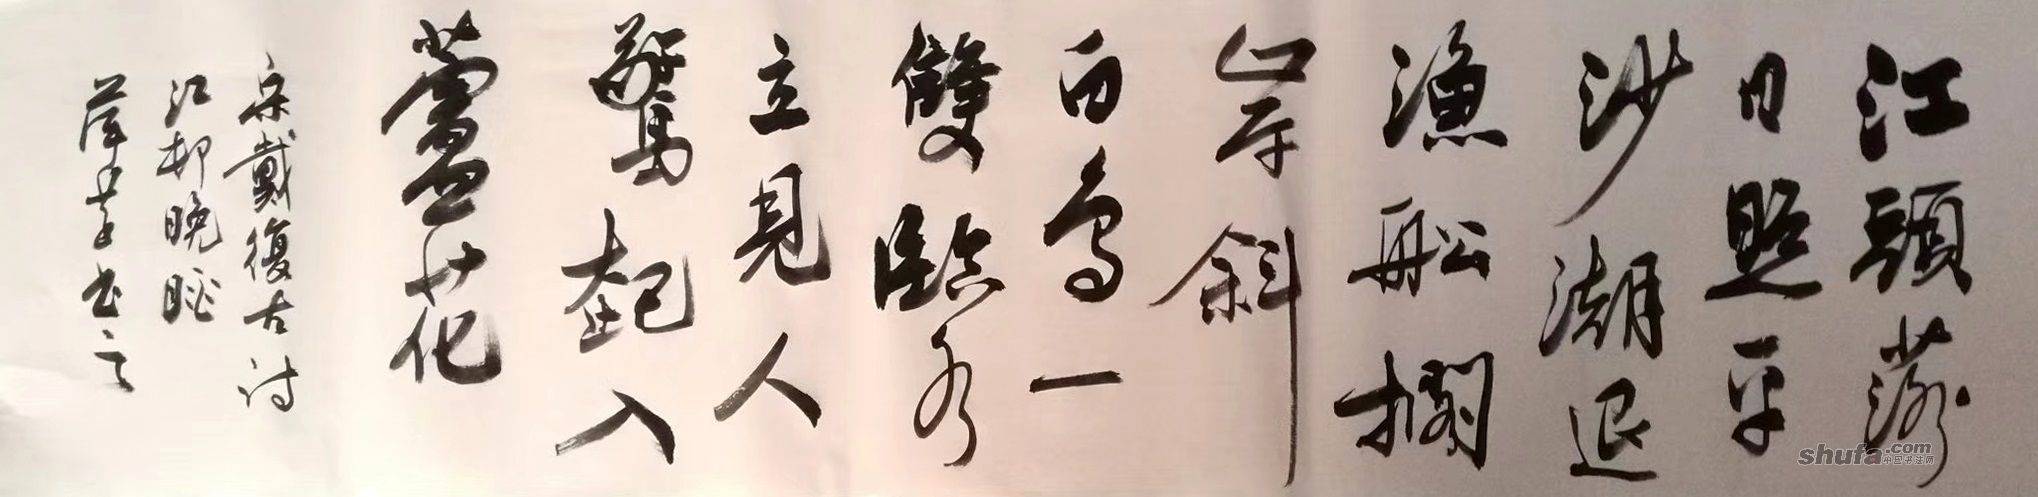 江頭落
日照平
沙潮退
漁船擱
岸斜
白鳥一
雙臨水
立見人
驚起入
蘆花
宋戴復古詩
江邨晚眺
書之
shufa.com
中国书法网